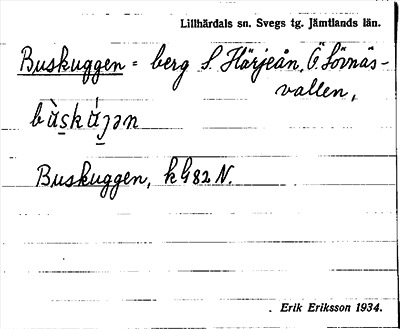 Lillhärdals sn. Svegs tg. Jämtlands län.
Buskuggen = berg S. Härjeån, Ö. Lövnäs-
vallen,
Buskuggen, k G82 N.
Erik Eriksson 1934.